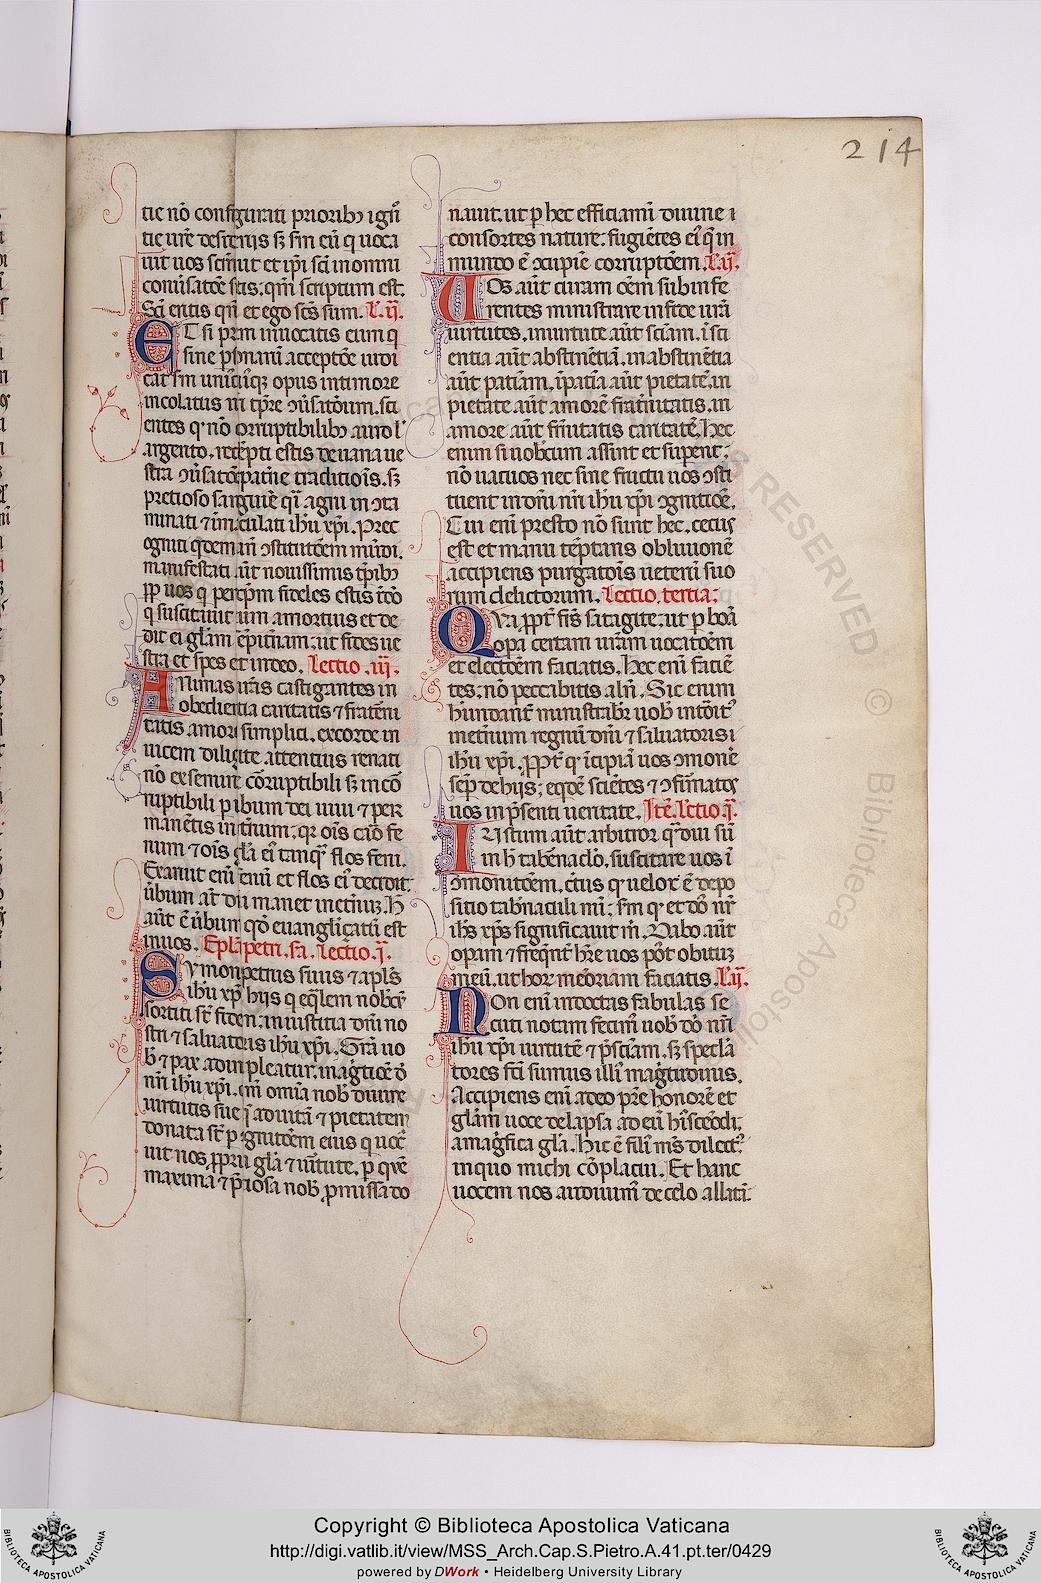 214
tie nõ configurati prioribꝫ igñ
tie ur̃e desiderijs sꝫ s̃m eũ q̃ uoca
uit uos sc̃m ut et ip̃i sc̃i in omni
conũsatõe sitis. qm̃ scriptum est.
Sc̃i eritis qm̃ et ego sc̃s sum. L. ij.
ET si pr̃em inuocatis eum q̃
sine p̱sonarũ acceptõe iudi
cat s̃m uniꝰcuiꝰqꝫ opus in timore
incolatus ur̃i tp̃re ↄũsatõ um. sci
entes q̃ nõ corruptibilibꝫ auro l̃
argento. redẽpti estis de uana ue
stra ↄũsatõe pat̃ne traditiõis. sꝫ
pretioso sanguiẽ q̃i agni in ↄta
minati ⁊ im̃aculati ih̃u xp̃i. Prec
ogniti q̃dem añ ↄstitutõem mũdi.
manifestati aũt nouissimis tp̃ribꝫ
pp̃ uos q̃ per ip̃m fideles estis ĩ dõ
q̃ suscitauit eum a mortuis et de
dit ei gl̃am ẽp̃itnam. ut fides ue
stra et spes et in deo. Lectio. iij.
ANimas ur̃as castigantes in
obedientia caritatis ⁊ frat̃ni
tatis amori simplici. ex corde in
uicem diligite attentius renati
nõ ex semine cõrruptibili sꝫ in cõ
ruptibili p̱ ũbum dei uiui ⁊ per
manẽtis in et̃num. qꝛ oĩs caro fe
num ⁊ oĩs gl̃a eiꝰ tanq̃ flos feni.
Exaruit eñi fenũ et flos eiꝰ decidit.
ũbum aũt dñi manet in et̃nuꝫ. H̃
aũt ẽ ũbum qđ euangliȥatũ est
in uos. Epl̃a petri. sc̃a. lectio. j̃.
SYmon petrus siuus ⁊ apl̃s
ih̃u xp̃i hijs q̃ eq̃lem nob̃cũ
sortiti st̃ fidem in iustitia dñi no
stri ⁊ saluatoris ih̃u xp̃i. Gr̃a uo
b̃ ⁊ pax adimpleatur. in aḡitiõe dõ
ñri ih̃u xp̃i. cũ omĩa nob̃ diuine
uirtutis sue q̃ ad uitã ⁊ pietatem
donata st̃ p̱ ↄgnitõem eius q̃ uoca
uit nos p̱pria gl̃a ⁊ uĩtute. p̱ quẽ
maxima ⁊ p̃tiosa nob̃ p̱missa do
nauit. ut p̱ hec efficiamĩ diuine
consortes nature. fugiẽtes eiꝰ q̃ in
mundo ẽ ↄcupiẽ corruptõem. L. ij.
UOs aũt curam oẽm subinfe
rentes ministrare in fide ur̃a
uirtutes. in uirtute aũt sciam. ĩ sci
entia aũt abstinẽtiã. in abstinẽtia
aũt patiam. ĩ patia aũt pietatẽ. in
pietate aũt amorẽ frat̃nitatis. in
amore aũt fr̃nitatis caritatẽ. Hec
enim si uobiscum assint et sup̱ent.
nõ uacuos nec sine fructu uos ↄsti
tuent in dñi ñri ih̃u xp̃i ↄgnitiõe.
Cui eñi presto nõ sunt hec. cecus
est et manu tẽptans obliuionẽ
accipiens purgatõis ueterũ suo
rum delictorum. Lectio. tertia:
QUa p̱pt̃ fr̃s satagite. ut p̱ boã
opa certam ur̃am uocatõem
et electõem faciatis. Hec eñi faciẽ
tes. nõ peccabitis alñ. Sic enim
h̃undant̃ ministrabiꝰ uob̃ intõit̃
in et̃num regnũ dñi ⁊ saluatoris
ih̃u xp̃i. p̱pt̃ q̃ ĩcipiã uos ↄmonẽ
semp̱ de hijs. eqdẽ sciẽtes ⁊ ↄfirmatos
uos in p̃senti ueritate. Itẽ. lectio. j̃.
IUstum aũt arbitror q̃ diu sũ
in h̃ tab̃naclo. suscitare uos ĩ
ↄmonitõem. c̃tus qꝛ uelox ẽ depo
sitio tab̃naculi mei. s̃m q̃ et dõ nr̃
ih̃s xp̃s significauit m̃. Dabo aũt
opam ⁊ freqñt̃ h̃re uos põt obituꝫ
meũ. ut hoꝛ meõriam faciatis. L. ij.
NOn eñi indoctas fabulas se
cuti notam fecimꝰ uob̃ dõ ñri
ih̃u xp̃i uirtutẽ ⁊ p̃sciam. sꝫ specla
tores fc̃i sumus illiꝰ maḡtudinis.
Accipiens eñi a deo pr̃e honorẽ et
gl̃am uoce delapsa ad eũ hꝰiscẽodi.
a maḡfica gl̃a. Hic ẽ filiꝰ mꝰs dilectꝰ.
in quo michi cõplacui. Et hanc
uocem nos audiuimꝰ de celo allatã.
RESERVED © Biblioteca Apostolica
Copyright © Biblioteca Apostolica Vaticana
http://digi.vatlib.it/view/MSS_Arch.Cap.S.Pietro.A.41.pt.ter/0429
powered by DWork • Heidelberg University Library
BIBLIOTECA APOSTOLICA VATICANA
BIBLIOTECA APOSTOLICA VATICANA